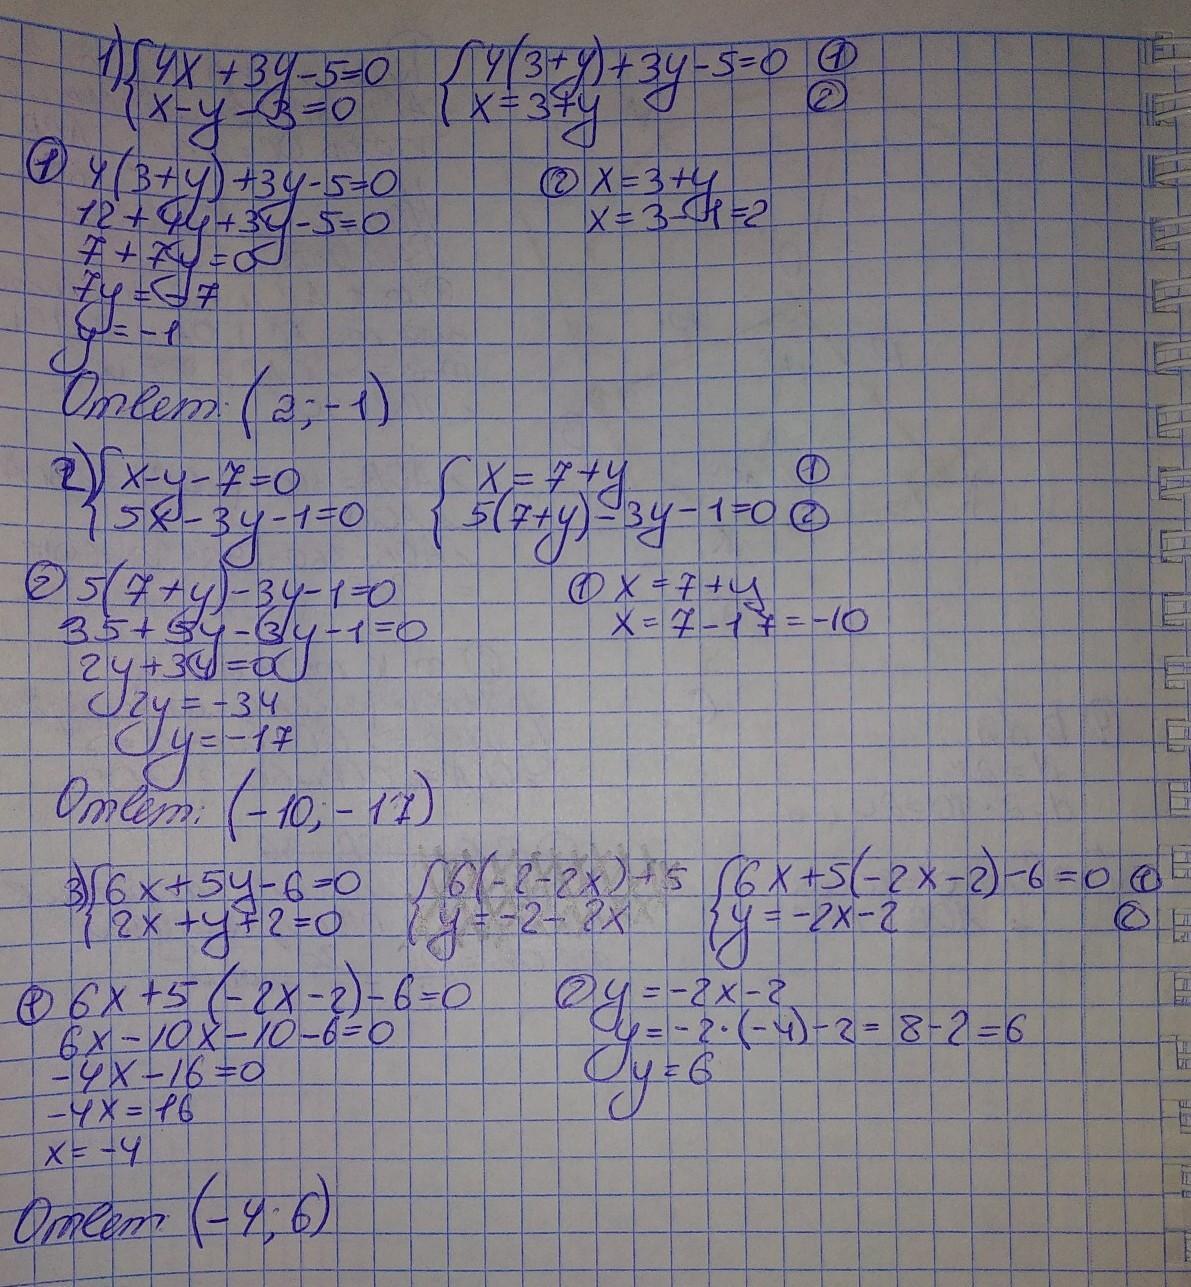 1) { 4x + 3y - 5 = 0 { 4(3+y) + 3y - 5 = 0 ①
x - y - 3 = 0 x = 3 + y ②
① 4(3+y) + 3y - 5 = 0 ② x = 3 + y
12 + 4y + 3y - 5 = 0 x = 3 - 1 = 2
7 + 7y = 0
7y = -7
y = -1
Ответ: (2; -1)
2) { x - y - 7 = 0 { x = 7 + y ①
5x - 3y - 1 = 0 5(7+y) - 3y - 1 = 0 ②
② 5(7+y) - 3y - 1 = 0 ① x = 7 + y
35 + 5y - 3y - 1 = 0 x = 7 - 17 = -10
2y + 34 = 0
2y = -34
y = -17
Ответ: (-10; -17)
3) { 6x + 5y - 6 = 0 { 6(-2-2x) + 5 { 6x + 5(-2x-2) - 6 = 0 ①
2x + y + 2 = 0 y = -2 - 2x y = -2x - 2 ②
① 6x + 5(-2x-2) - 6 = 0 ② y = -2x - 2
6x - 10x - 10 - 6 = 0 y = -2·(-4) - 2 = 8 - 2 = 6
-4x - 16 = 0 y = 6
-4x = 16
x = -4
Ответ: (-4; 6)